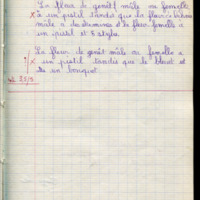 La fleur de genêt mâle ou femelle
x a un pistil tandis que la fleur
mâle a des étamines et la fleur femelle a
un pistil et 5 styles.
La fleur de genêt mâle ou femelle a
x un pistil tandis que le
est un bouquet